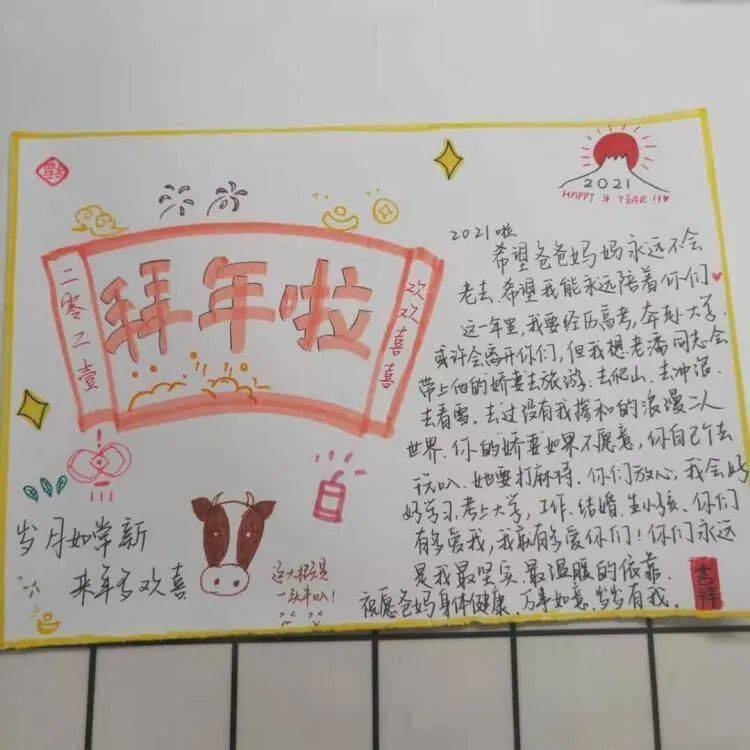 2021
HAPPY 牛 YEAR!!
二零二壹
拜年啦
欢欢喜喜
2021啦
希望爸爸妈妈永远不会
老去,希望我能永远陪着你们
这一年里,我要经历高考,奔赴大学.
或许会离开你们,但我想老潘同志会
带上他的娇妻去旅游:去爬山、去冲浪、
去看雪、去过没有我搅和的浪漫二人
世界.你的娇妻如果不愿意,你自己个去
玩叭、她要打麻将.你们放心,我会好
好学习,考上大学,工作、结婚、生小孩、你们
有多爱我,我就有多爱你们!你们永远
是我最坚实、最温暖的依靠.
祝愿爸妈身体健康、万事如意、岁岁有我.
吉祥
岁月如常新
来年多欢喜
这大概是
一头牛叭!